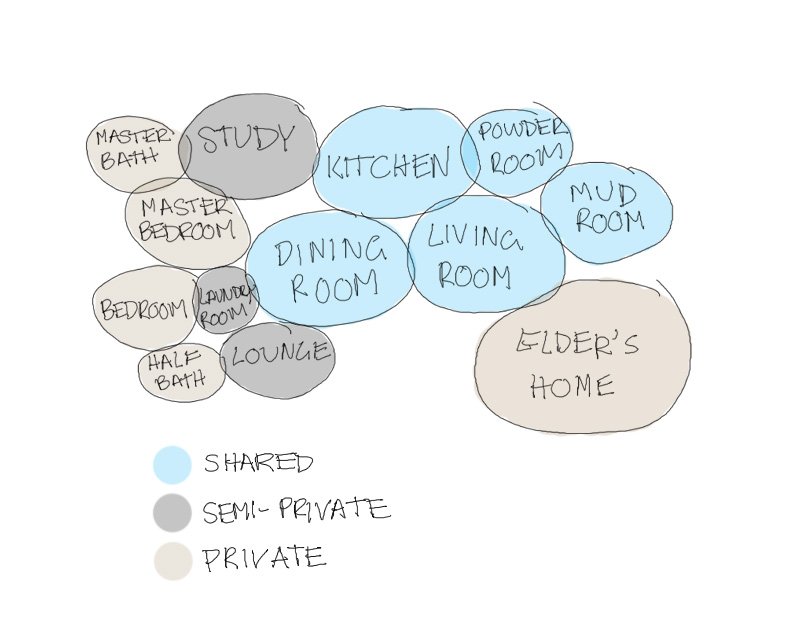 MASTER
BATH
STUDY
KITCHEN
POWDER
ROOM
MUD
ROOM
MASTER
BEDROOM
DINING
ROOM
LIVING
ROOM
BEDROOM
LAUNDRY
ROOM
HALF
BATH
LOUNGE
ELDER'S
HOME
SHARED
SEMI-PRIVATE
PRIVATE